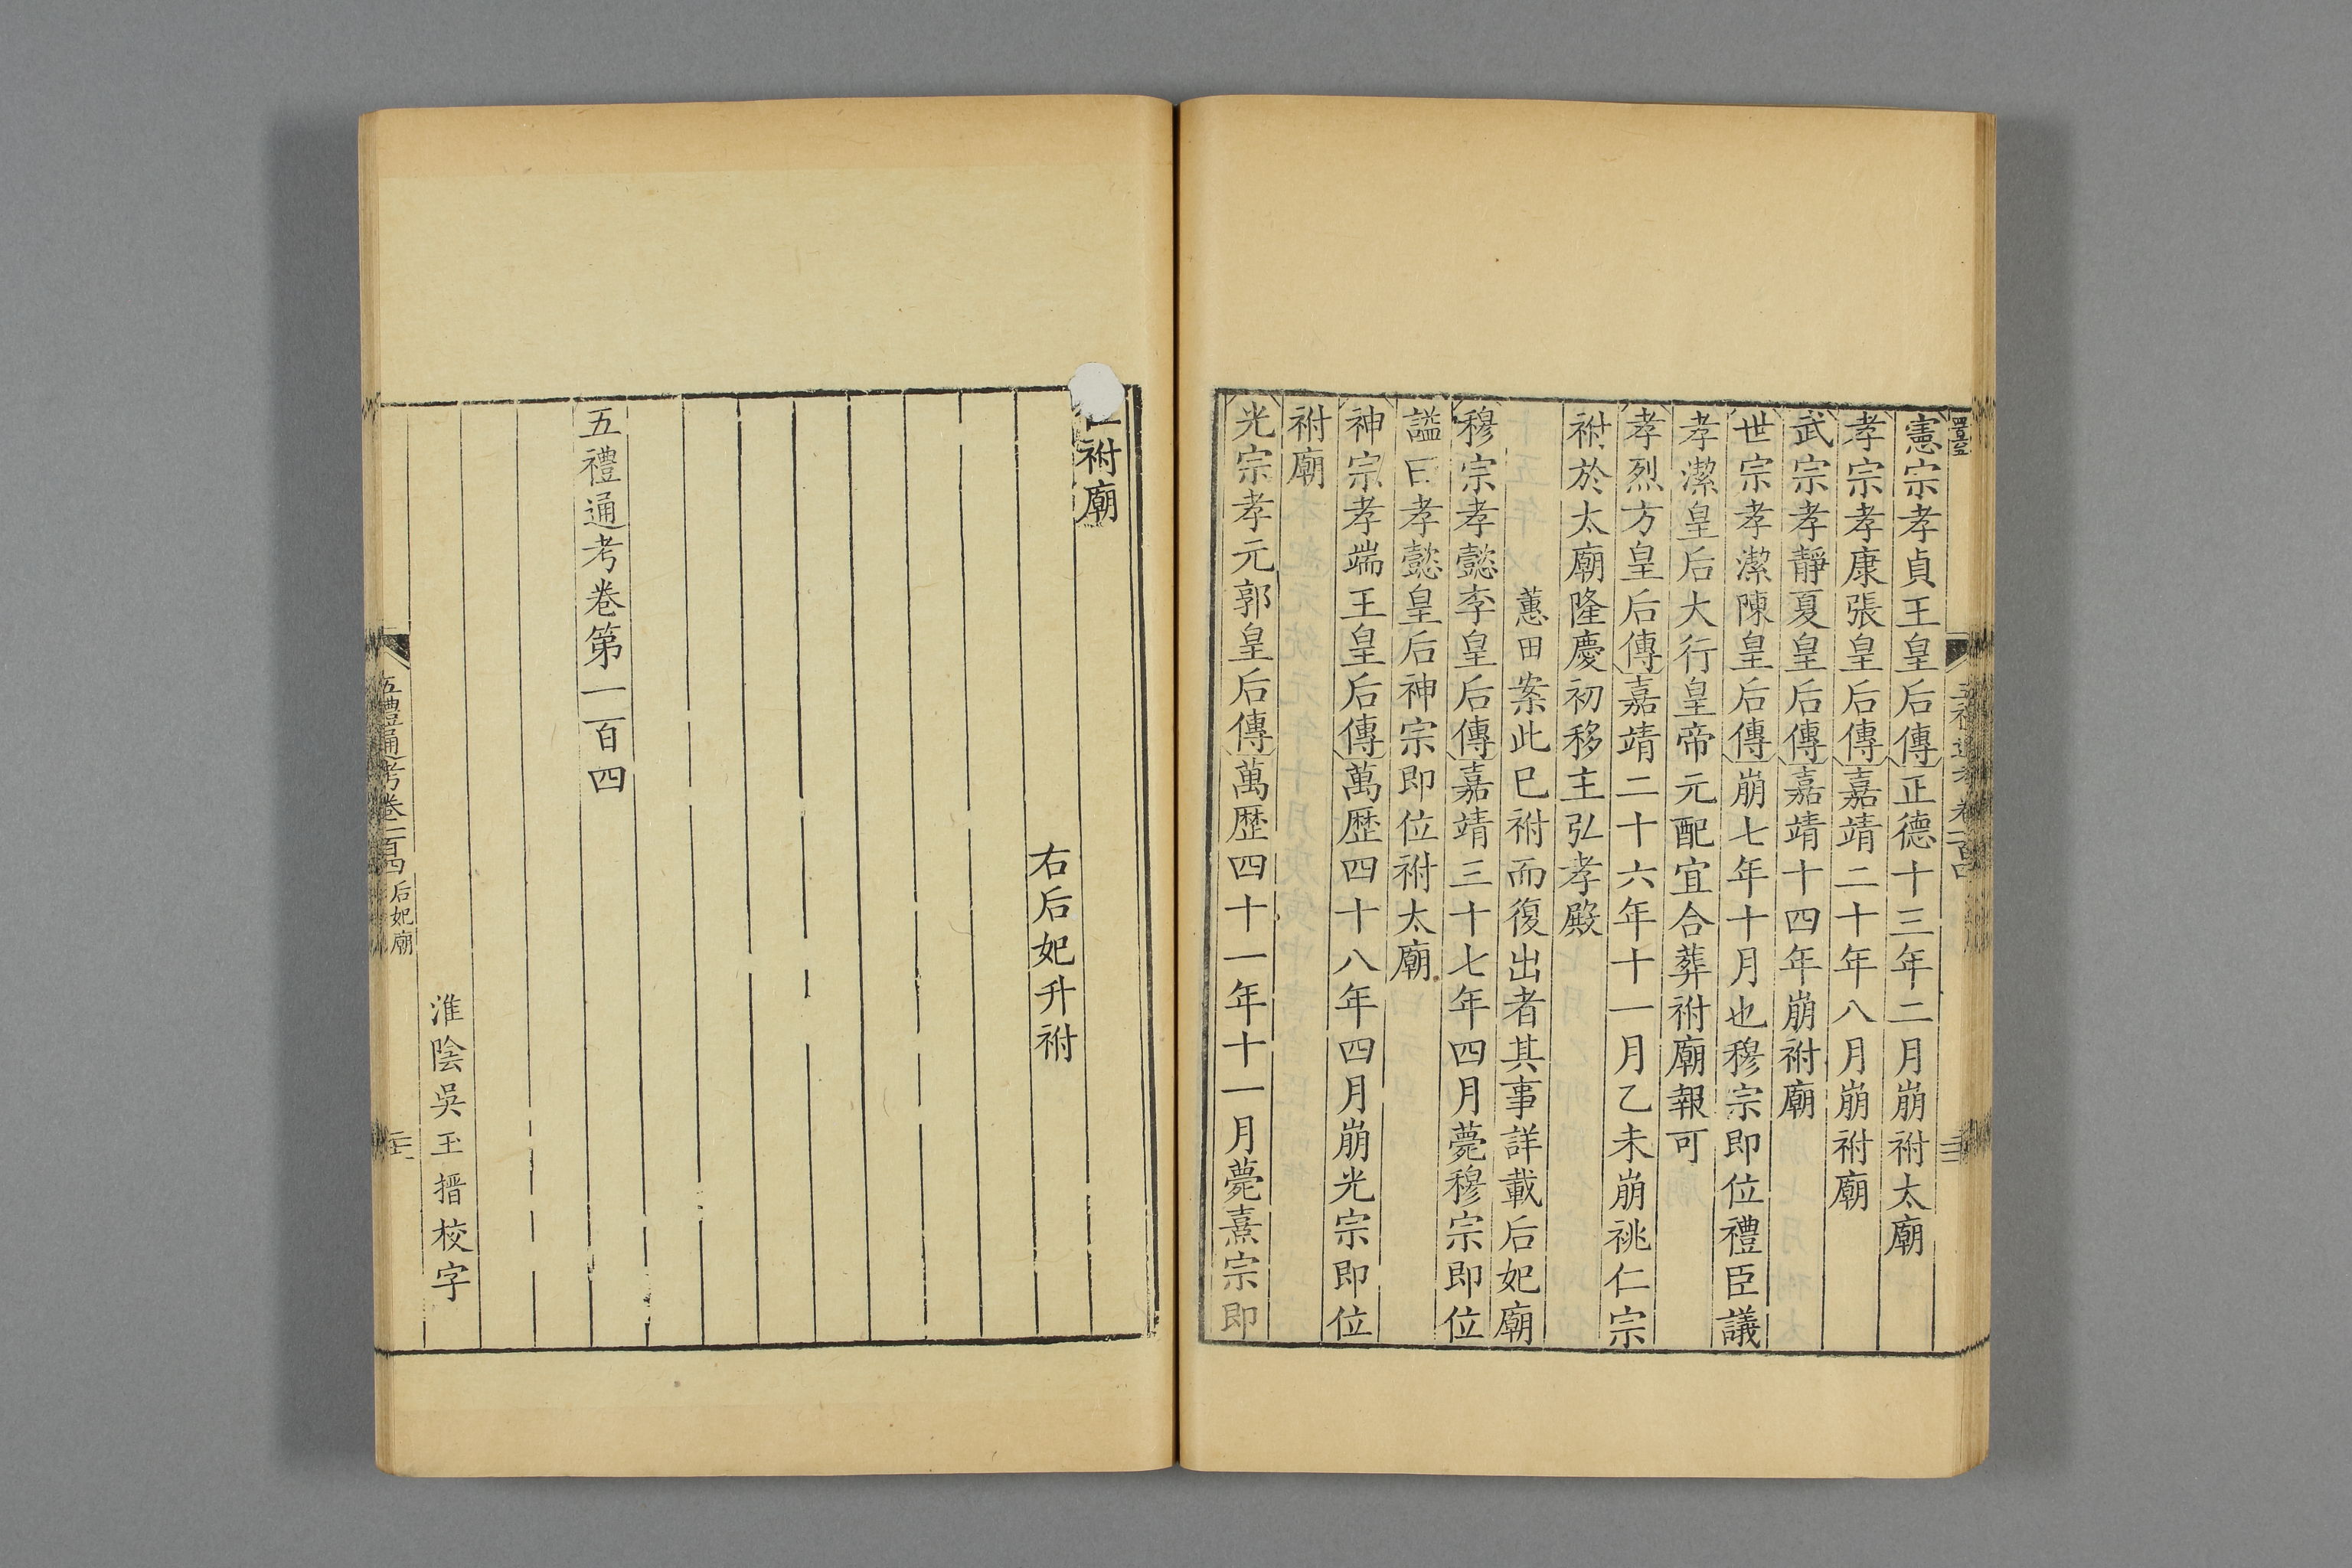 憲宗孝貞王皇后傳正德十三年二月崩祔太廟
孝宗孝康張皇后傳嘉靖二十年八月崩祔廟
武宗孝靜夏皇后傳嘉靖十四年崩祔廟
世宗孝潔陳皇后傳崩七年十月也穆宗即位禮臣議
孝潔皇后大行皇帝元配宜合葬祔廟報可
孝烈方皇后傳嘉靖二十六年十一月乙未崩祧仁宗
祔於太廟隆慶初移主弘孝殿
蕙田案此已祔而復出者其事詳載后妃廟
穆宗孝懿李皇后傳嘉靖三十七年四月薨穆宗即位
謚曰孝懿皇后神宗即位祔太廟
神宗孝端王皇后傳萬歴四十八年四月崩光宗即位
祔廟
光宗孝元郭皇后傳萬歴四十一年十一月薨熹宗即
祔廟
右后妃升祔
五禮通考卷第一百四
淮陰吳玉搢校字
五禮通考卷一百四 后妃廟